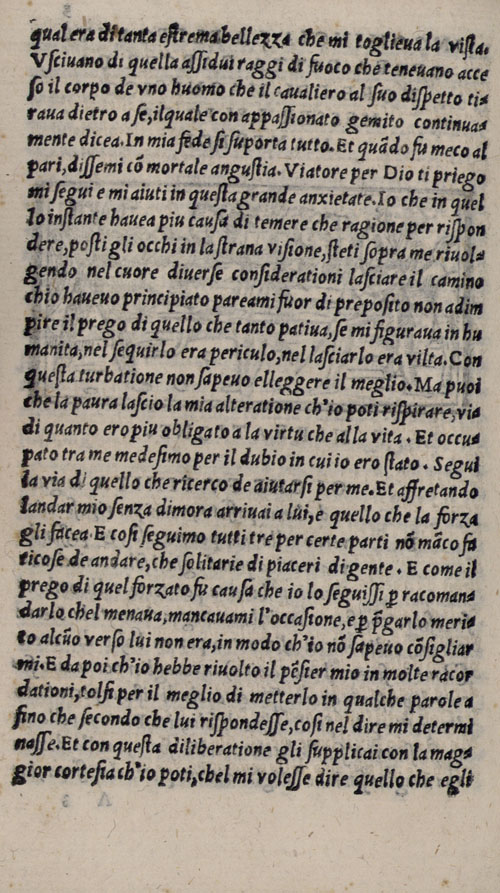 qual era di tanta eſtrema bellezza che mi toglieua la viſta.
Vſciuano di quella aſſidui raggi di fuoco che teneuano acce
ſo il corpo de vno huomo che il caualiero al ſuo diſpetto ti-
raua dietro a ſe, ilquale con appaſſionato gemito continua=
mente dicea. In mia fede ſi ſuporta tutto. Et quãdo fu meco al
pari, diſſemi cõ mortale anguſtia. Viatore per Dio ti priego
mi ſegui e mi aiuti in queſta grande anxietate. Io che in quel
lo inſtante hauea piu cauſa di temere che ragione per riſpon
dere, poſti gli occhi in la ſtrana viſione, ſteti ſopra me riuol=
gendo nel cuore diuerſe conſiderationi laſciare il camino
chio haueuo principiato pareami fuor di prepoſito non adim
pire il prego di quello che tanto patiua, ſe mi figuraua in hu
manita, nel ſequirlo era periculo, nel laſciarlo era vilta. Con
queſta turbatione non ſapeuo elleggere il meglio. Ma puoi
che la paura laſcio la mia alteratione ch'io poti riſpirare, via
di quanto ero piu obligato a la virtu che alla vita. Et occu
pato tra me medeſimo per il dubio in cui io ero ſtato. Segui
la via di quello che ricerco de aiutarſi per me. Et affretando
landar mio ſenza dimora arriuai a lui, e quello che la forza
gli facea. E coſi ſeguimo tutti tre per certe parti nõ mãco fa
ticoſe de andare, che ſolitarie di piaceri di gente. E come il
prego di quel forzato fu cauſa che io lo ſeguiſſi ꝑ racoman=
darlo chel menaua, mancauami l'occaſione, e ꝑ ꝓgarlo meri=
to alcũo verſo lui non era, in modo ch'io nõ ſapeuo cõſigliar
mi. E da poi ch'io hebbe riuolto il pẽſier mio in molte racor
dationi, tolſi per il meglio di metterlo in qualche parole a
fino che ſecondo che lui riſpondeſſe, coſi nel dire mi determi
naſſe. Et con queſta diliberatione gli ſupplicai con la mag=
gior corteſia ch'io poti, chel mi voleſſe dire quello che egli